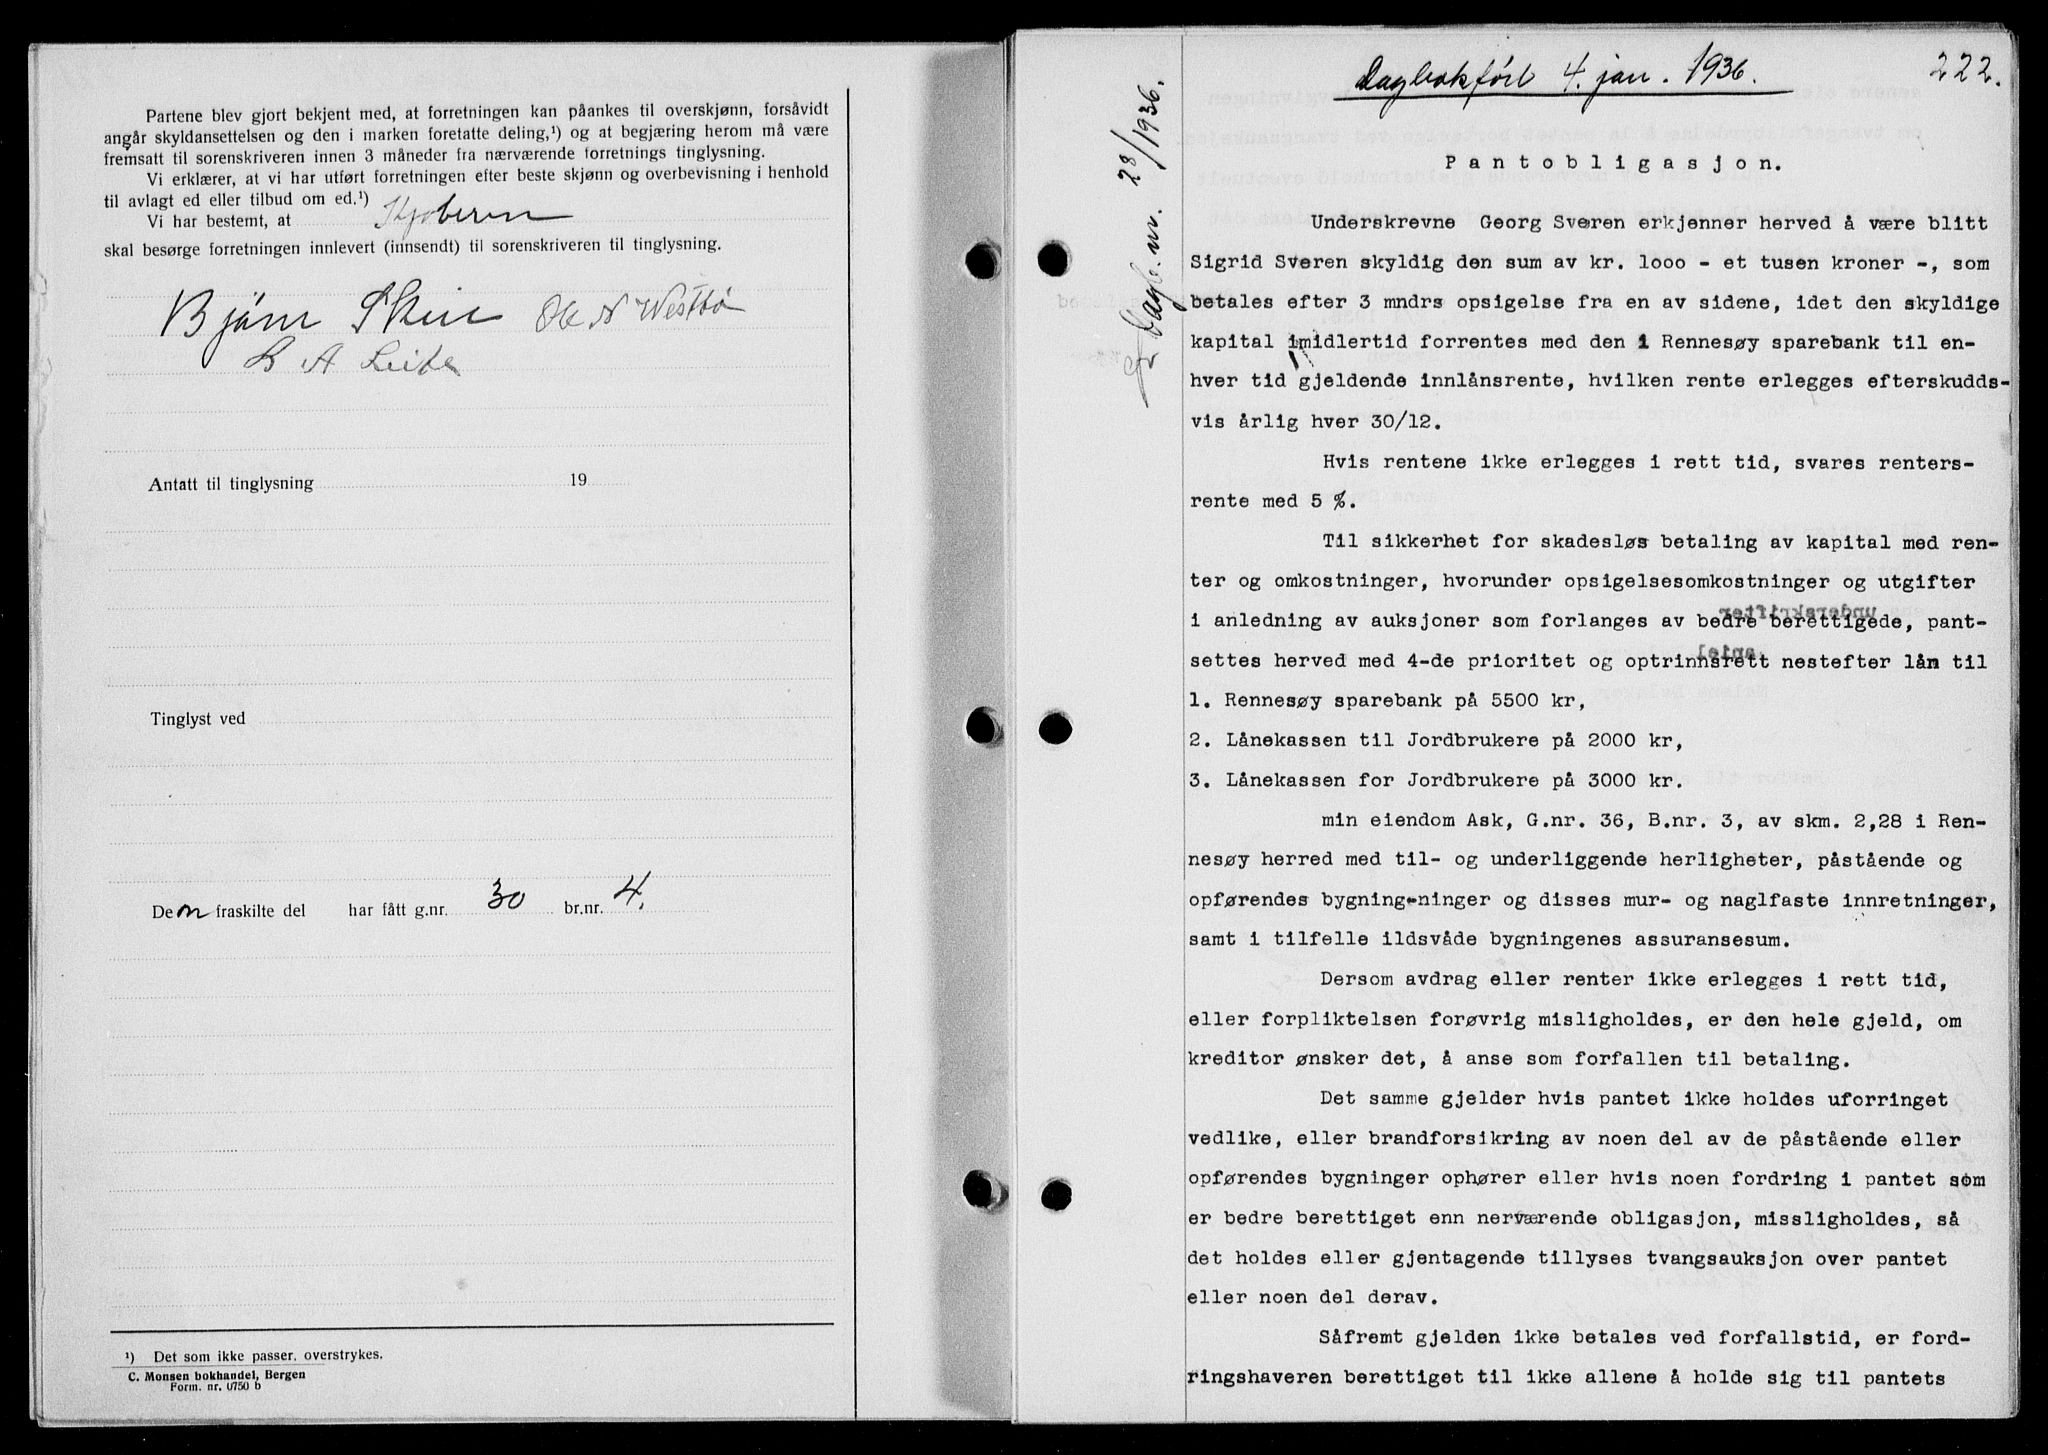 Partene blev gjort bekjent med, at forretningen kan påankes til overskjønn, forsåvidt
angår skyldansettelsen og den i marken foretatte deling,¹) og at begjæring herom må være
fremsatt til sorenskriveren innen 3 måneder fra nærværende forretnings tinglysning.
Vi erklærer, at vi har utført forretningen efter beste skjønn og overbevisning i henhold
til avlagt ed eller tilbud om ed.¹)
Vi har bestemt, at Kjøberen
skal besørge forretningen innlevert (innsendt) til sorenskriveren til tinglysning.
Bjørn Skeie Ole N Westbø
L A Leide
Antatt til tinglysning 19
Tinglyst ved
Den fraskilte del har fått g.nr. 30 br.nr. 4.
¹) Det som ikke passer, overstrykes.
C. Monsen bokhandel, Bergen
Form. nr. 0750 b
Dagbokført 4. jan. 1936.
222.
Dagb.nr. 28/1936.
Pantobligasjon.
Underskrevne Georg Sveren erkjenner herved å være blitt
Sigrid Sveren skyldig den sum av kr. 1000 - et tusen kroner -, som
betales efter 3 mndrs opsigelse fra en av sidene, idet den skyldige
kapital imidlertid forrentes med den i Rennesøy sparebank til en-
hver tid gjeldende innlånsrente, hvilken rente erlegges efterskudds-
vis årlig hver 30/12.
Hvis rentene ikke erlegges i rett tid, svares renters-
rente med 5 %.
Til sikkerhet for skadesløs betaling av kapital med ren-
ter og omkostninger, hvorunder opsigelsesomkostninger og utgifter
i anledning av auksjoner som forlanges av bedre berettigede, pant-
settes herved med 4-de prioritet og optrinnsrett nestefter lån til
1. Rennesøy sparebank på 5500 kr,
2. Lånekassen til Jordbrukere på 2000 kr,
3. Lånekassen for Jordbrukere på 3000 kr.
min eiendom Ask, G.nr. 36, B.nr. 3, av skm. 2,28 i Ren-
nesøy herred med til- og underliggende herligheter, påstående og
opførendes bygning-ninger og disses mur- og naglfaste innretninger,
samt i tilfelle ildsvåde bygningenes assuransesum.
Dersom avdrag eller renter ikke erlegges i rett tid,
eller forpliktelsen forøvrig misligholdes, er den hele gjeld, om
kreditor ønsker det, å anse som forfallen til betaling.
Det samme gjelder hvis pantet ikke holdes uforringet
vedlike, eller brandforsikring av noen del av de påstående eller
opførendes bygninger ophører eller hvis noen fordring i pantet som
er bedre berettiget enn nerværende obligasjon, missligholdes, så
det holdes eller gjentagende tillyses tvangsauksjon over pantet
eller noen del derav.
Såfremt gjelden ikke betales ved forfallstid, er ford-
ringshaveren berettiget til ikke allene å holde sig til pantets